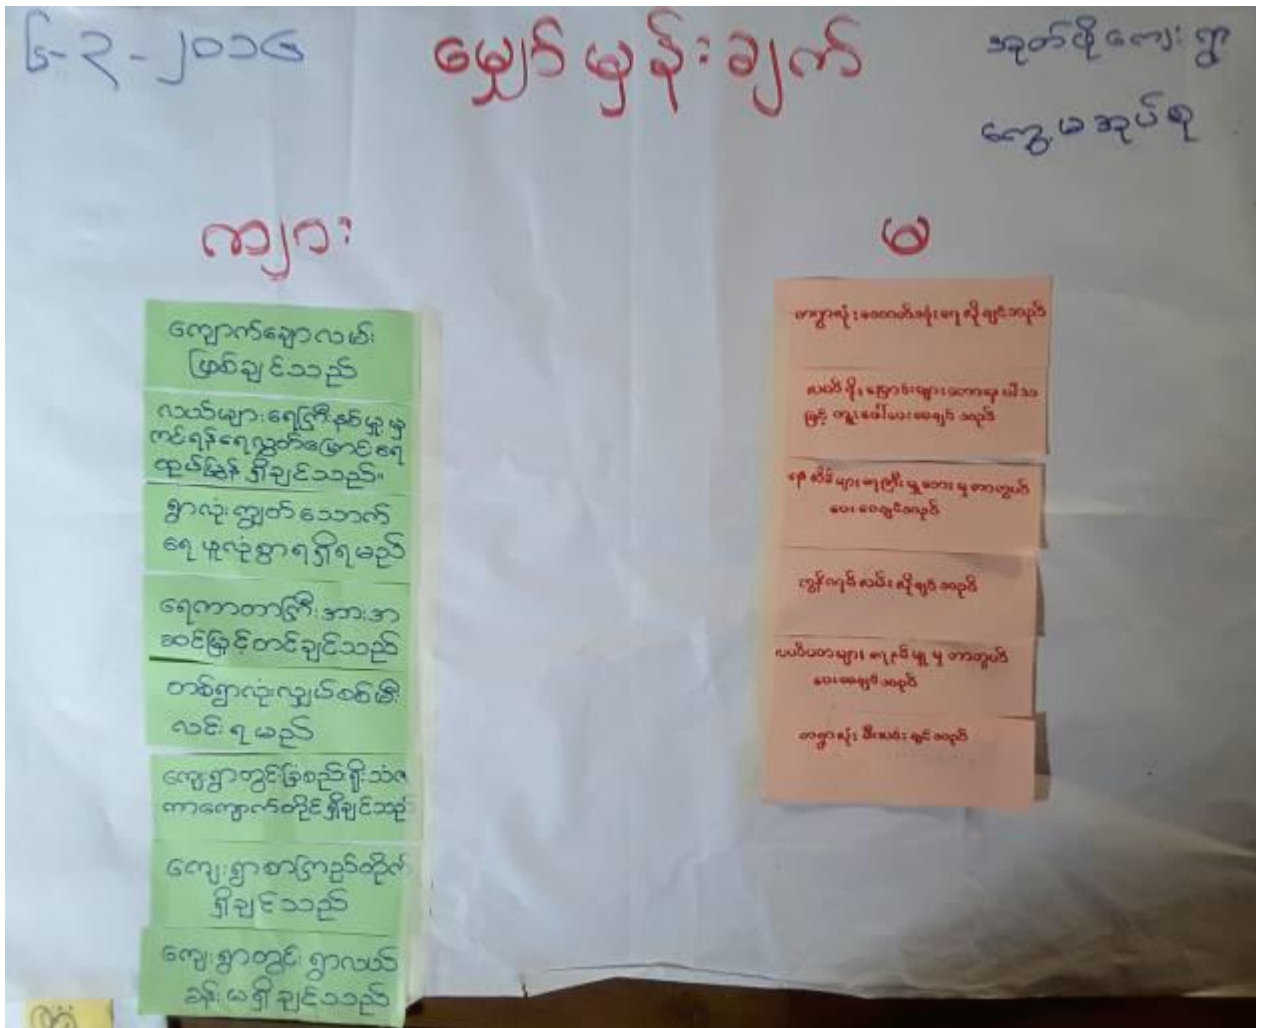 ၆-၃-၂၀၁၆
မျှော်မှန်းချက်
အုတ်ဖိုကျေးရွာ
ကျွေ့မအုပ်စု
ကျား
ကျောက်ချောလမ်း
ဖြစ်ချင်သည်
လယ်များရေကြီးနစ်မြှုပ်မှုမှ
ကင်းရန်ရေလွှတ်မြောင်းရေ
ထုတ်မြွန်ရှိချင်သည်။
ရွာလုံးကျွတ်သောက်
ရေဖူလုံစွာရရှိရမည်
ရေကာတာကြီးအားအ
ဆင့်မြှင့်တင်ချင်သည်
တစ်ရွာလုံးလျှပ်စစ်မီး
လင်းရမည်
ကျေးရွာတွင်ခြံစည်းရိုးသံဇ
ကာကျောက်တိုင်ရှိချင်သည်
ကျေးရွာစာကြည့်တိုက်
ရှိချင်သည်
ကျေးရွာတွင်းရွာလယ်
ခန်းမရှိချင်သည်
မ
တရွာလုံးသောက်သုံးရေလိုချင်သည်
မြောင်းများတောနေပါသ
ဖြင့် တူးဖော်ပေးစေချင်သည်
များရေကြီးမှုဘေးမှကာကွယ်
ပေးစေချင်သည်
ကွန်ကရစ်လမ်းလိုချင်သည်
များရေနစ်မြှုပ်မှုမှကာကွယ်
ပေးစေချင်သည်
တရွာလုံးမီးလင်းချင်သည်